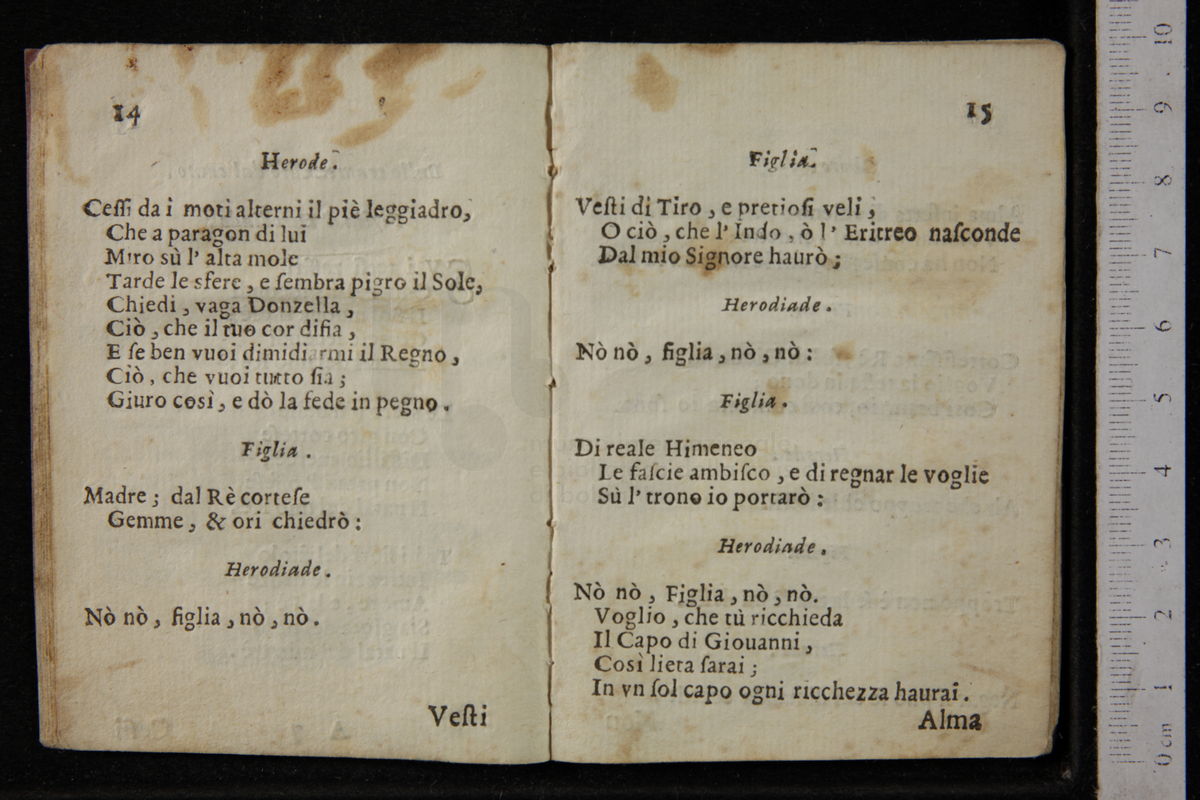 14
Herode.
Ceſſi da i moti alterni il piè leggiadro,
Che a paragon di lui
Miro sù l' alta mole
Tarde le sfere, e ſembra pigro il Sole,
Chiedi, vaga Donzella,
Ciò, che il tuo cor diſia,
E ſe ben vuoi dimidiarmi il Regno,
Ciò, che vuoi tutto ſia;
Giuro così, e dò la fede in pegno.
Figlia.
Madre; dal Rè corteſe
Gemme, & ori chiedrò:
Herodiade.
Nò nò, figlia, nò, nò.
Veſti
15
Figlia.
Veſti di Tiro, e pretioſi veli,
O ciò, che l' Indo, ò l' Eritreo naſconde
Dal mio Signore haurò;
Herodiade.
Nò nò, figlia, nò, nò:
Figlia.
Di reale Himeneo
Le faſcie ambiſco, e di regnar le voglie
Sù l' trono io portarò:
Herodiade.
Nò nò, Figlia, nò, nò.
Voglio, che tù ricchieda
Il Capo di Giouanni,
Così lieta ſarai;
In vn ſol capo ogni ricchezza haurai.
Alma
0 cm
1
2
3
4
5
6
7
8
9
10